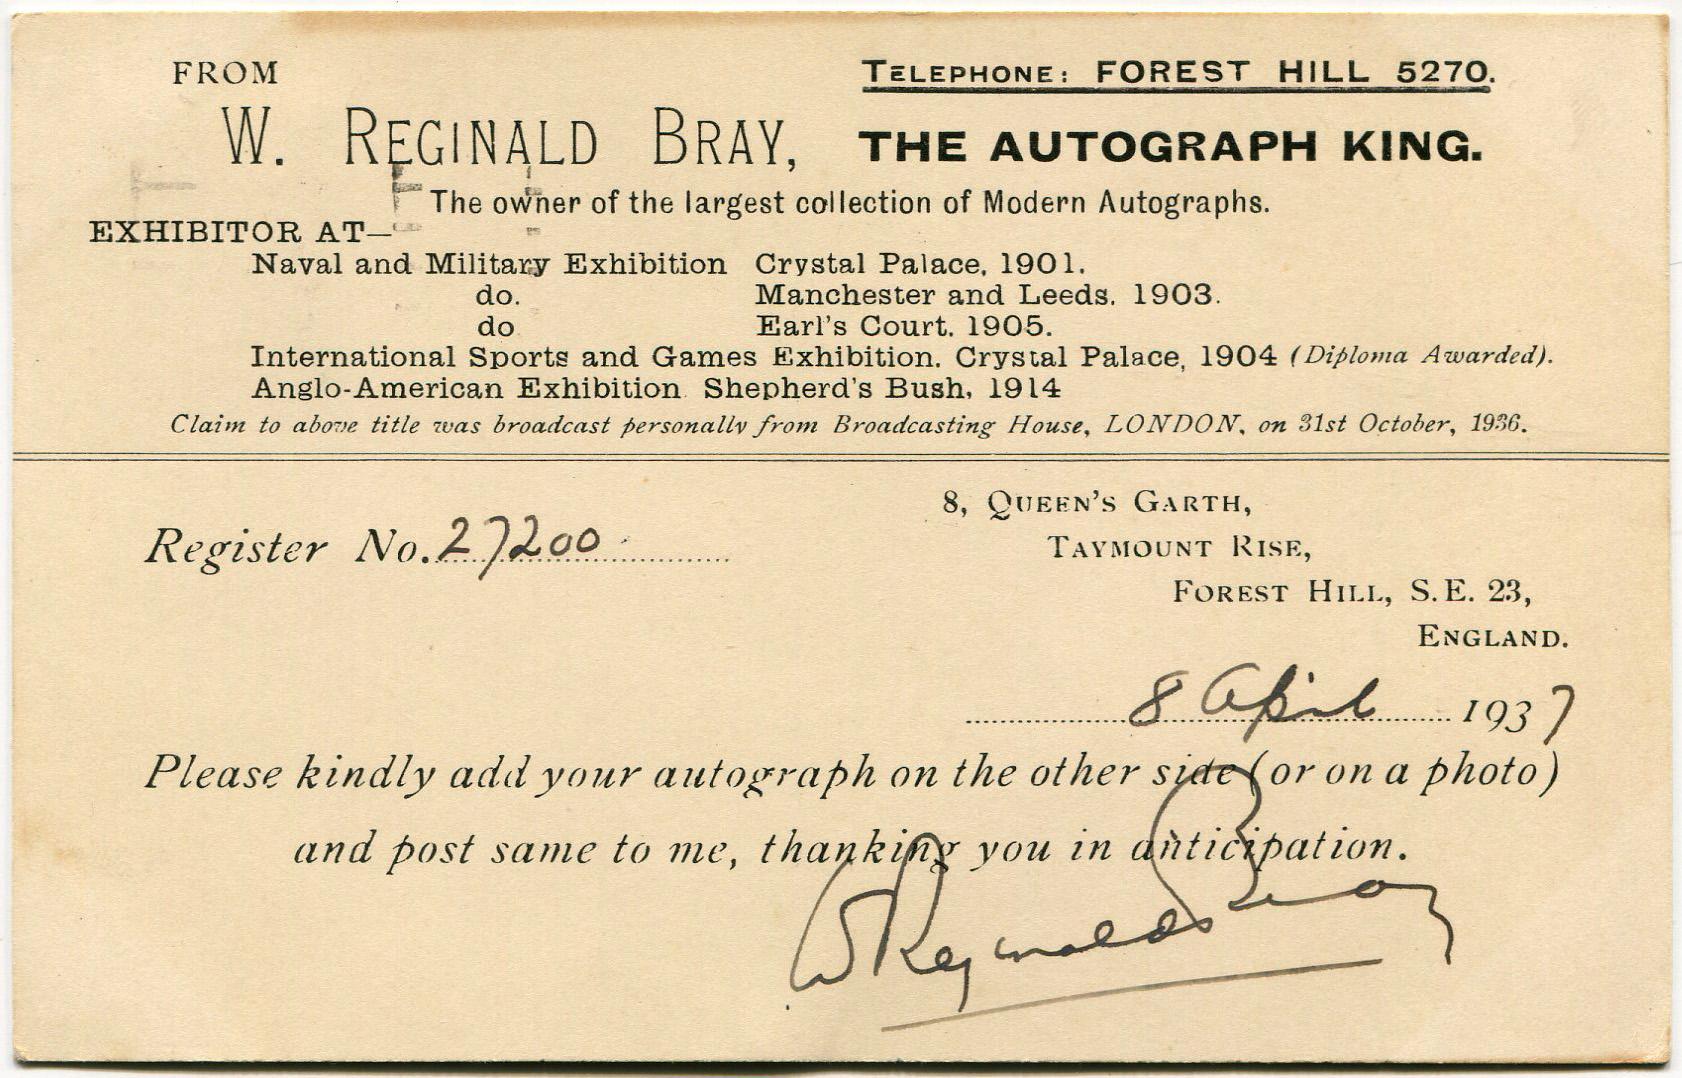 FROM
TELEPHONE: FOREST HILL 5270.
W. REGINALD BRAY, THE AUTOGRAPH KING.
The owner of the largest collection of Modern Autographs.
EXHIBITOR AT—
Naval and Military Exhibition Crystal Palace, 1901.
do. Manchester and Leeds, 1903.
do Earl's Court. 1905.
International Sports and Games Exhibition. Crystal Palace, 1904 (Diploma Awarded).
Anglo-American Exhibition Shepherd's Bush, 1914
Claim to above title was broadcast personally from Broadcasting House, LONDON, on 31st October, 1936.
8, QUEEN'S GARTH,
Register No. 27200
TAYMOUNT RISE,
FOREST HILL, S.E. 23,
ENGLAND.
8 April 1937
Please kindly add your autograph on the other side (or on a photo)
and post same to me, thanking you in anticipation.
W Reginald Bray